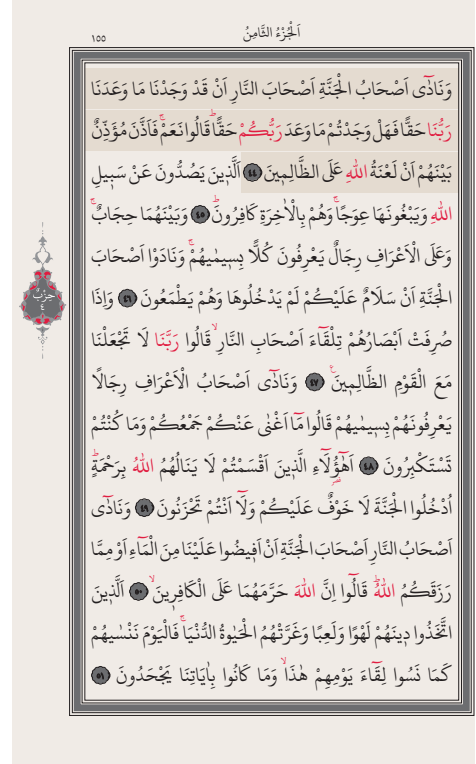 ١٥٥
اَلْجُزْءُ الثَّامِنُ
وَنَادٰٓى اَصْحَابُ الْجَنَّةِ اَصْحَابَ النَّارِ اَنْ قَدْ وَجَدْنَا مَا وَعَدَنَا
رَبُّنَا حَقًّا فَهَلْ وَجَدْتُمْ مَا وَعَدَ رَبُّكُمْ حَقًّاۜ قَالُوا نَعَمْۚ فَاَذَّنَ مُؤَذِّنٌ
بَيْنَهُمْ اَنْ لَعْنَةُ اللّٰهِ عَلَى الظَّالِمٖينَ ٤٤ اَلَّذٖينَ يَصُدُّونَ عَنْ سَبٖيلِ
اللّٰهِ وَيَبْغُونَهَا عِوَجًاۚ وَهُمْ بِالْاٰخِرَةِ كَافِرُونَۜ ٤٥ وَبَيْنَهُمَا حِجَابٌۚ
وَعَلَى الْاَعْرَافِ رِجَالٌ يَعْرِفُونَ كُلًّا بِسٖيمٰيهُمْۚ وَنَادَوْا اَصْحَابَ
الْجَنَّةِ اَنْ سَلَامٌ عَلَيْكُمْ لَمْ يَدْخُلُوهَا وَهُمْ يَطْمَعُونَ ٤٦ وَاِذَا
صُرِفَتْ اَبْصَارُهُمْ تِلْقَٓاءَ اَصْحَابِ النَّارِۙ قَالُوا رَبَّنَا لَا تَجْعَلْنَا
مَعَ الْقَوْمِ الظَّالِمٖينَۚ ٤٧ وَنَادٰٓى اَصْحَابُ الْاَعْرَافِ رِجَالًا
يَعْرِفُونَهُمْ بِسٖيمٰيهُمْ قَالُوا مَٓا اَغْنٰى عَنْكُمْ جَمْعُكُمْ وَمَا كُنْتُمْ
تَسْتَكْبِرُونَ ٤٨ اَهٰٓؤُ۬لَٓاءِ الَّذٖينَ اَقْسَمْتُمْ لَا يَنَالُهُمُ اللّٰهُ بِرَحْمَةٍۜ
اُدْخُلُوا الْجَنَّةَ لَا خَوْفٌ عَلَيْكُمْ وَلَٓا اَنْتُمْ تَحْزَنُونَ ٤٩ وَنَادٰٓى
اَصْحَابُ النَّارِ اَصْحَابَ الْجَنَّةِ اَنْ اَفٖيضُوا عَلَيْنَا مِنَ الْمَٓاءِ اَوْ مِمَّا
رَزَقَكُمُ اللّٰهُۜ قَالُٓوا اِنَّ اللّٰهَ حَرَّمَهُمَا عَلَى الْكَافِرٖينَۙ ٥٠ اَلَّذٖينَ
اتَّخَذُوا دٖينَهُمْ لَهْوًا وَلَعِبًا وَغَرَّتْهُمُ الْحَيٰوةُ الدُّنْيَاۚ فَالْيَوْمَ نَنْسٰيهُمْ
كَمَا نَسُوا لِقَٓاءَ يَوْمِهِمْ هٰذَاۙ وَمَا كَانُوا بِاٰيَاتِنَا يَجْحَدُونَ ٥١
حِزْبٌ
٤